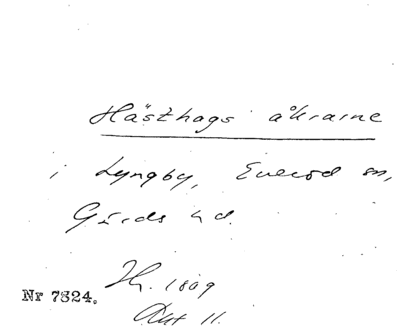 Hästhags åkrarne
i Lyngby, Everöd sn,
Gärds hd.
Nr 7324.
Sk. 1809
Akt 11.